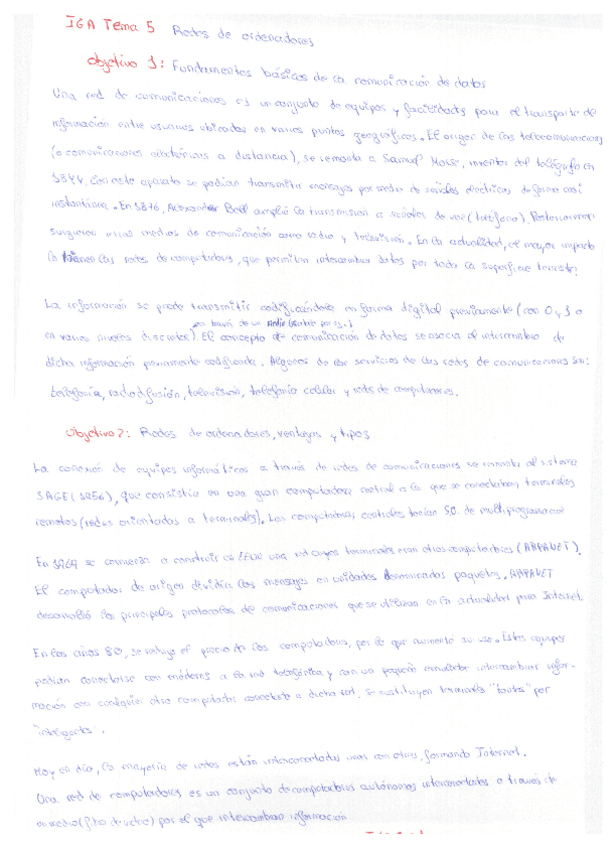 IGA Tema 5 Redes de ordenadores
Objetivo 1: Fundamentos básicos de la comunicación de datos
Una red de comunicaciones es un conjunto de equipos y facilidades para el transporte de
información entre usuarios ubicados en varios puntos geográficos. El origen de las telecomunicaciones
(o comunicaciones eléctricas a distancia), se remonta a Samuel Morse, inventor del telégrafo en
1844. Con este aparato se podían transmitir mensajes por medio de señales eléctricas de forma casi
instantánea. En 1876, Alexander Bell amplió la transmisión a señales de voz (teléfono). Posteriormente
surgieron otros medios de comunicación como radio y televisión. En la actualidad, el mayor impacto
lo tienen las redes de computadores, que permiten intercambiar datos por toda la superficie terrestre.
La información se puede transmitir codificándola en forma digital previamente (con 0 y 1 o
en varios niveles discretos). El concepto de comunicación de datos se asocia al intercambio de
a través de un medio
dicha información previamente codificada. Algunos de los servicios de las redes de comunicaciones son:
telefonía, radiodifusión, televisión, telefonía celular y redes de computadores.
Objetivo 2: Redes de ordenadores, ventajas y tipos
La conexión de equipos informáticos a través de redes de comunicaciones se remonta al sistema
SAGE (1956), que consistía en una gran computadora central a la que se conectaban terminales
remotos (redes orientadas a terminales). Las computadoras centrales tenían S.O. de multiprogramación
En 1967 se comienza a construir en EEUU una red cuyos terminales eran otros computadores (ARPANET).
El computador de origen dividía los mensajes en unidades denominadas paquetes. ARPANET
desarrolló los principales protocolos de comunicaciones que se utilizan en la actualidad para Internet.
En los años 80, se redujo el precio de las computadoras, por lo que aumentó su uso. Estos equipos
podían conectarse con módems a la red telefónica y con un pequeño emulador intercambiar infor-
mación con cualquier otro computador conectado a dicha red. Se sustituyen terminales "tontos" por
"inteligentes".
Hoy en día, la mayoría de redes están interconectadas unas con otras, formando Internet.
Una red de computadores es un conjunto de computadores autónomos interconectados a través de
un medio por el que intercambian información